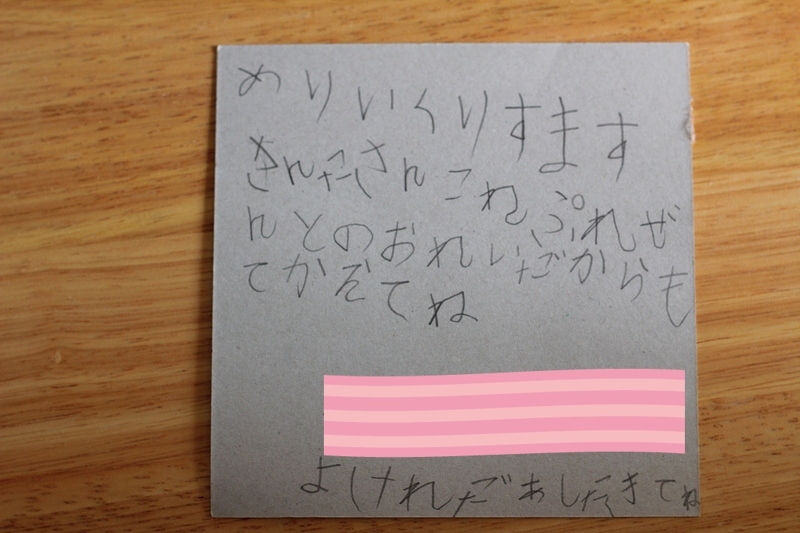 めりいくりすます
さんたさん これ ぷれぜ
んとのおれいだからも
てかぞてね
よけれだあしたきてね